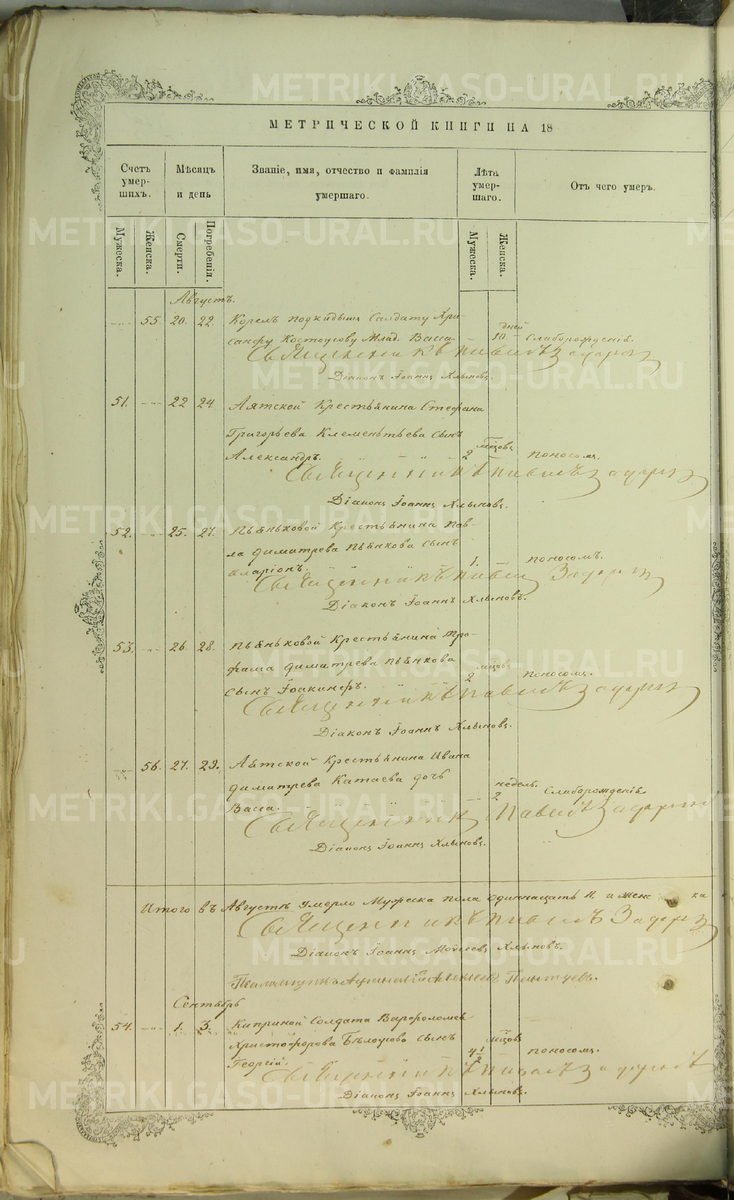 МЕТРИЧЕСКОЙ КНИГИ НА 18
Счетъ умер- шихъ.
Мѣсяцъ и день
Званіе, имя, отчество и фамилія умершаго.
Лѣта умер- шаго.
Отъ чего умеръ.
Мужеска.
Женска.
Смерти.
Погребенія.
Мужеска.
Женска.
Августъ.
55 20. 22. подкидышъ Солдату Хри-
санфу Костоусову Млад. Васса 10 дней Слаборожденіе.
Священникъ Павелъ
Діаконъ Іоаннъ Хлыновъ.
51. 22 24 Аятской Крестьянина Стефана
Григорьева Клементьева сынъ
Александръ. 2 мѣсцовъ поносомъ.
Священникъ Павелъ
Діаконъ Іоаннъ Хлыновъ.
52. 25. 27. Пьяньковой Крестьянина Пав-
ла Димитрева Пьянкова сынъ
Иларіонъ. 1. поносомъ.
Священникъ Павелъ
Діаконъ Іоаннъ Хлыновъ.
53. 26. 28. Пьяньковой Крестьянина Тро-
фима Димитрева Пьянкова
сынъ Іоакинфъ. 2 мѣсцовъ поносомъ.
Священникъ Павелъ
Діаконъ Іоаннъ Хлыновъ.
56. 27. 29. Аятской Крестьянина Ивана
Димитрева Катаева дочь
Васса. 2 недель. Слаборожденіе.
Священникъ Павелъ
Діаконъ Іоаннъ Хлыновъ.
Итого въ Августѣ умерло Мужеска пола одиннацать, и Женска
Священникъ Павелъ
Діаконъ Іоаннъ Моисеевъ Хлыновъ.
Псаломщикъ
Сентябрь
54. 1. 3. Киприной Солдата Варфоломея
Христофорова Бѣлоусова сынъ
Георгій. 4½ мѣсцовъ поносомъ.
Священникъ Павелъ
Діаконъ Іоаннъ Хлыновъ.
METRIKI.GASO-URAL.RU